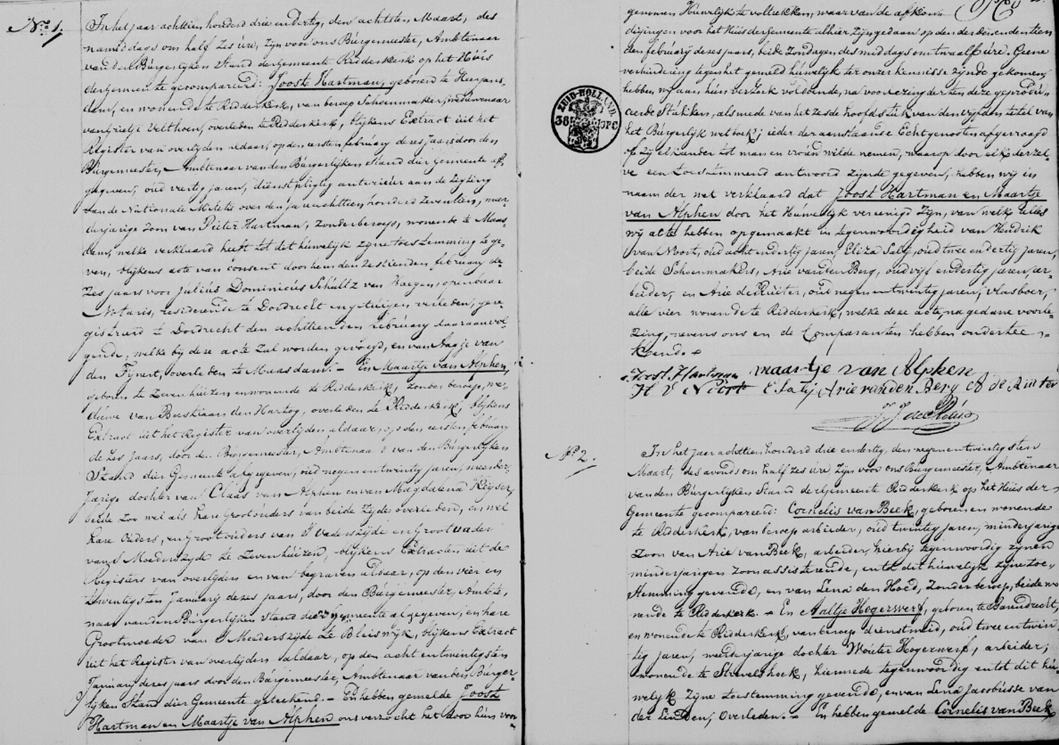 No. 1.
In het jaar achttien honderd drie en dertig, den achtsten Maart, des
namiddags om half zes ure, zijn voor ons Burgemeester, Ambtenaar
van den Burgerlyken Stand der gemeente Ridderkerk op het Huis
der gemeente gecompareerd: Joost Hartman, geboren te
en wonende te Ridderkerk, van beroep Schoenmaker, weduwenaar
van Velthoen, overleden te Ridderkerk, blijkens Extract uit het
Register van overlijden aldaar, op den eersten february dezes jaars door den
Burgemeester, Ambtenaar van den Burgerlijken Stand dier gemeente af-
gegeven, oud veertig jaren, dienstpligtig anterieur aan de ligting
van de Nationale Militie over den jare achttien honderd zeventien, meer
derjarige zoon van Pieter Hartman, zonder beroep, wonende te Maas
dam, welke verklaard heeft tot dit huwelijk zijne toestemming te ge-
ven, blijkens acte van consent door hem den zestienden february de-
zes jaars voor Julius Dominicus Schultz van Haegen, openbaar
Notaris, residerende te Dordrecht en getuigen, verleden, gere-
gistreerd te Dordrecht den achttienden february daaraanvol-
gende, welke bij deze acte zal worden gevoegd, en van Aagje van
den Tijnert, overleden te Maasdam. – En Maartje van Alphen,
geboren te Zevenhuizen en wonende te Ridderkerk, zonder beroep, we-
duwe van Bastiaan den Hartog, overleden te Ridderkerk, blijkens
Extract uit het Register van overlijden aldaar, op den eersten februari
dezes jaars, door den Burgemeester, Ambtenaar van den Burgerlijken
Stand dier Gemeente afgegeven, oud negen en twintig jaren, meerder
jarige dochter van Claas van Alphen en van Magdalena Keijser,
beide zoo wel als hare Grootouders van beide zijde overleden, en wel
hare Ouders, en grootouders van Vaderszijde en Grootvader
van Moederszijde te Zevenhuizen, blijkens Extracten uit de
Registers van overlijden en van begraven aldaar, op den vier en
twintigsten January dezes jaars, door den Burgemeester, Ambte-
naar van den Burgerlijken Stand dier gemeente afgegeven, en hare
Grootmoeder van Moederszijde te Bleiswijk, blijkens Extract
uit het Register van overlijden aldaar, op den acht en twintigsten
January dezes jaars door den Burgemeester, Ambtenaar van den Burger
lijken Stand dier Gemeente geteekend. – En hebben gemelde Joost
Hartman en Maartje van Alphen ons verzocht het door hun voor
genomen Huwelijk te voltrekken, waar van de afkon-
digingen voor het Huis der gemeente alhier zijn gedaan op den derden en tien
den february dezes jaars, beide Zondagen des middags om twaalf ure. Geene
verhindering tegen het gemeld huwelijk ter onzer kennisse zijnde gekomen,
hebben wij aan hun verzoek voldoende, na voorlezing der ten deze geprodu-
ceerde Stukken, als mede van het zesde hoofdstuk van den vijfden titel van
het Burgerlijk wetboek; ieder der aanstaande Echtgenoten afgevraagd
of zij elkander tot man en vrouw wilde nemen, waarop door elk derzel-
ve een toestemmend antwoord zijnde gegeven, hebben wij in
naam der wet verklaard dat Joost Hartman en Maartje
van Alphen door het Huwelijk vereenigd zijn, van welk alles
wij acte hebben opgemaakt in tegenwoordigheid van Hendrik
van Noort, oud acht en dertig jaren, Eliza Taly, oud twee en dertig jaren,
beide Schoenmakers, Arie van den Berg, oud vijf en dertig jaren, ar-
beider, en Arie de Ruiter, oud negen en twintig jaren, vlasboer,
alle vier wonende te Ridderkerk, welke deze acte, na gedane voorle-
zing, nevens ons en de Comparanten hebben onderteekend.
ZUID-HOLLAND
Joost Hartman maartje van Alphen
H V Noort E Taly Arie van den Berg A de Ruiter
No. 2.
In het jaar achttien honderd drie en dertig, den negen en twintigsten
Maart, des avonds om half zes ure zijn voor ons Burgemeester, Ambtenaar
van den Burgerlijken Stand der Gemeente Ridderkerk op het Huis der
Gemeente gecompareerd: Cornelis van Beek, geboren en wonende
te Ridderkerk, van beroep arbeider, oud twintig jaren, minderjarige
zoon van Arie van Beek, arbeider, hierbij tegenwoordig zijnen
minderjarigen zoon assisterende, en tot dit huwelijk zijne toe-
stemming gevende, en van Lena den Hoed, zonder beroep, beide wo-
nende te Ridderkerk. – En Aaltje Hogerwerf, geboren te Barendrecht,
en wonende te Ridderkerk, van beroep dienstmeid, oud twee en twin-
tig jaren, meerderjarige dochter Wouter Hogerwerf, arbeider,
wonende te hiermede tegenwoordig en tot dit hu-
welijk zijne toestemming gevende, en van Lena Jacobisse van
der Linden, Overleden. – En hebben gemelde Cornelis van Beek